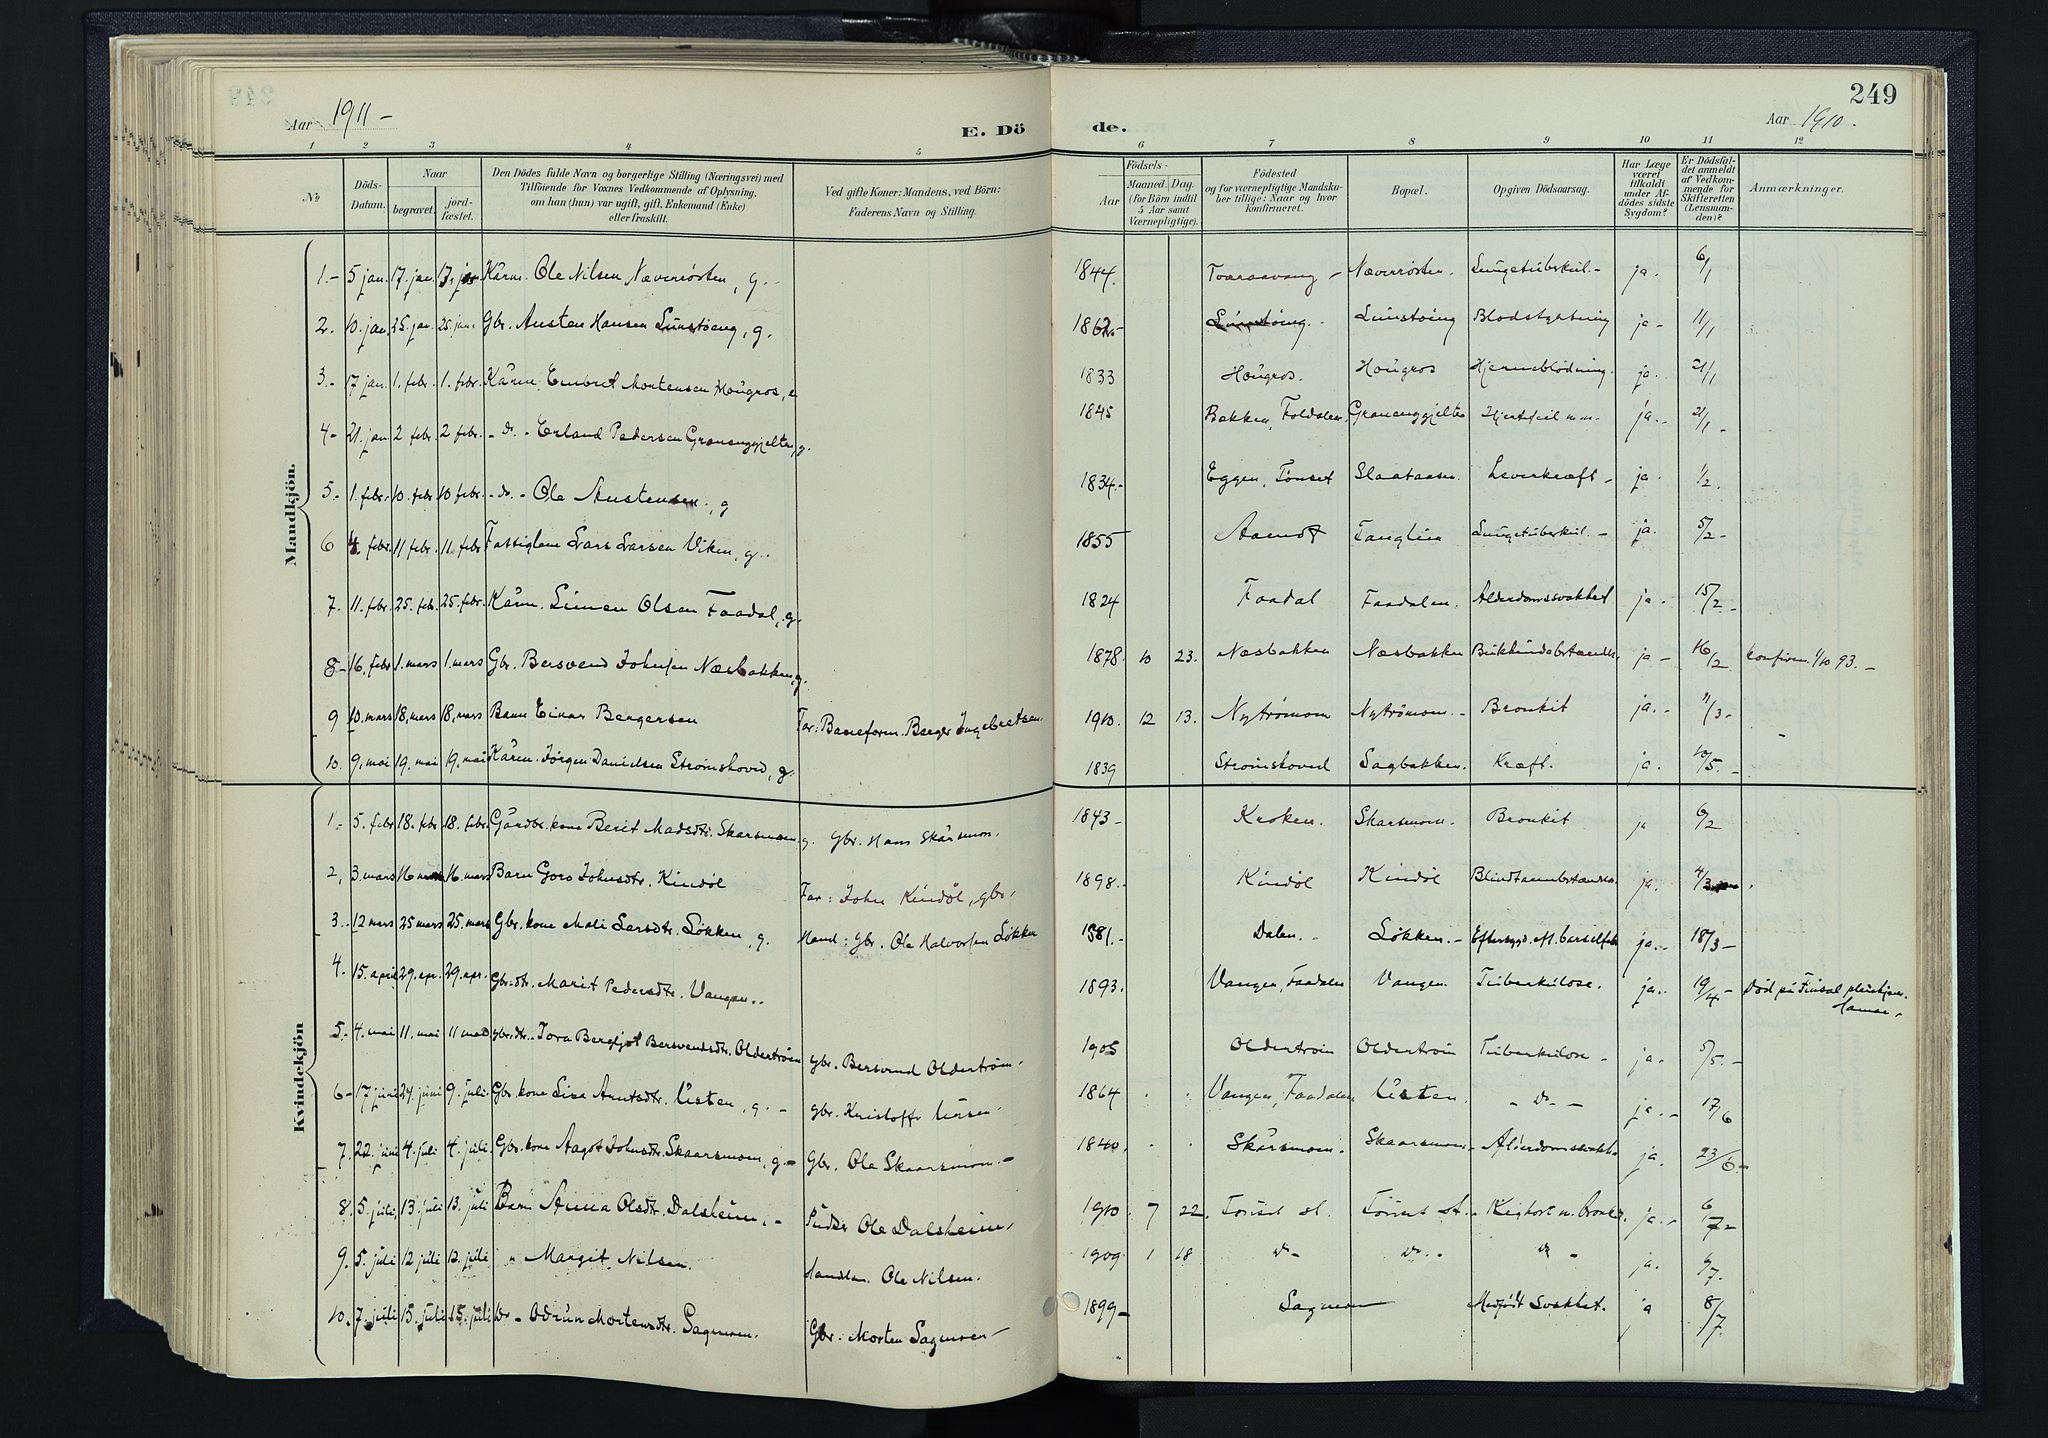 249
Aar 1911-
E. Döde.
Aar 1910.
1 2 3 4 5 6 7 8 9 10 11 12
No
Döds-Datum.
Naar
begravet.
jordfæstet.
Den Dödes fulde Navn og borgerlige Stilling (Næringsvei) med
Tilföiende for Voxnes Vedkommende af Oplysning,
om han (hun) var ugift, gift, Enkemand (Enke)
eller fraskilt.
Ved gifte Koner: Mandens, ved Börn:
Faderens Navn og Stilling.
Födsels-
Aar
Maaned. Dag.
(for Börn indtil
5 Aar samt
Værnepligtige).
Födested
og for værnepligtige Mandskaber tillige: Naar og hvor
Konfirmeret.
Bopæl.
Opgiven Dödsaarsag.
Har Læge
været
tilkaldt
under Afdödes sidste
Sygdom?
Er Dödsfaldet anmeldt
af Vedkommende for
Skifteretten
(Lensmanden)?
Anmærkninger.
Mandkjön.
1.- 5 jan. 17. jan. 17. jan. Kårm. Ole Nilsen Næverrösten, g. 1844. Næverrösten. Lungetuberkul.- ja. 6/1
2. 10. jan. 25. jan. 25. jan. Gbr. Austen Hansen Lunstöeng, g. 1862.- Lunstöing. Lunstöing Blodstyrtning ja- 11/1
3.- 17 jan. 1. febr. 1. febr. Kårm. Embret Mortensen Hougros, e 1833 Hougros. Hougros Hjerneblödning. ja. 21/1
4- 21. jan. 2 febr. 2 febr. - do. - Erland Pedersen g. 1845 Bakken, Foldalen, Hjertfeil m.m. ja.- 21/1-
5.- 1. febr. 10. febr. 10 febr. - do. - Ole Austensen, g 1834.- Eggen, Tönset Slaataasen Leverkræft- ja. 1/2.
6 4. febr. 11 febr. 11. febr. Lars Larsen Viken, g. 1855 Aamot Tanglien Lungetuberkul.- ja. 5/2-
7. 11. febr. 25. feb. 25. febr. Kårm. Simen Olsen Faadal, g. 1824 Faadal Faadalen. Alderdomssvakhet ja. 15/2-
8- 16. febr. 1. mars 1. mars Gbr. Bersvend Johnsen Næsbakken, g. 1878. 10 23. Næsbakken Næsbakken ja- 16/2 konfirm. 1/10 93.-
9 10. mars 18. mars 18. mars Barn Einar Bergersen Far: Baneform. Berger Ingebretsen. 1910. 12 13. Nyströmoen Nyströmoen.- Bronkit ja.- 11/3-
10. 9. mai 19. mai 19. mai Kårm. Jörgen Danielsen Strömshoved, g. 1839 Strömshoved Sagbakken. Kræft. ja. 10/5.-
Kvindekjön
1.- 5. febr 18. febr 18. febr. Gårdbr. kone Berit Madsdtr. Skarsmoen g. Gbr. Hans Skårsmoen. 1843- Kroken. Skarsmoen. Bronkit ja 6/2
2, 3. mars 16 mars 16. mars Barn Goro Johnsdtr. Kindöl Far: John Kindöl, gbr. 1898.- Kindöl Kindöl ja. 4/3
3.- 12 mars 25 mars 25. mars Gbr. kone Mali Larsdtr. Lökken, g. Mand: Gbr. Ole Halvorsen Lökken 1881.- Dalen.- Lökken.- ja.- 18/3-
4. 15. april 29. apr. 29. apr. Gbr.dtr. Marit Pedersdtr. Vangen.. 1893. Vangen, Faadalen Vangen. Tuberkulose. ja.. 19/4- Död på Hamar.
5.- 4. mai 11. mai 11 mai gbr.dtr. Tora Bergljot Bersvendsdtr. Oldertröen gbr. Bersvend Oldertröen. 1905 Oldertröen Oldertröen Tuberkulose- ja.- 5/5.-
6- 17 juni 24. juni 9. juli. Gbr. kone Lisa Arntsdtr. Urstén, g.- gbr. Kristoffer 1864 Vangen, Faadalen Urstén. - do - ja.- 17/6
7. 22. juni 4. juli 4. juli. Gbr. kone Aagot Johnsdtr. Skaarsmoen, g.- Gbr. Ole Skaarsmoen.- 1840. Skårsmoen. Skaarsmoen. Alderdomssvakh. ja. 23/6-
8. 5. juli, 13. juli 13. juli Barn Anna Olsdtr. Dalsheim,- Pudser Ole Dalsheim. 1910. 7 22. Tönset st. Tönset st. Kighost m. bronk. ja.- 6/7-
9. 5. juli 12 juli 12. juli " Margit Nilsen. Handlm. Ole Nilsen. 1909. 1 18 do- do.. do - ja. 6/7.
10. 7. juli 15. juli 15. juli do - Odrun Mortensdtr. Sagmoen. Gbr. Morten Sagmoen- 1899- Sagmoen Medfödt Svakhet. ja 8/7